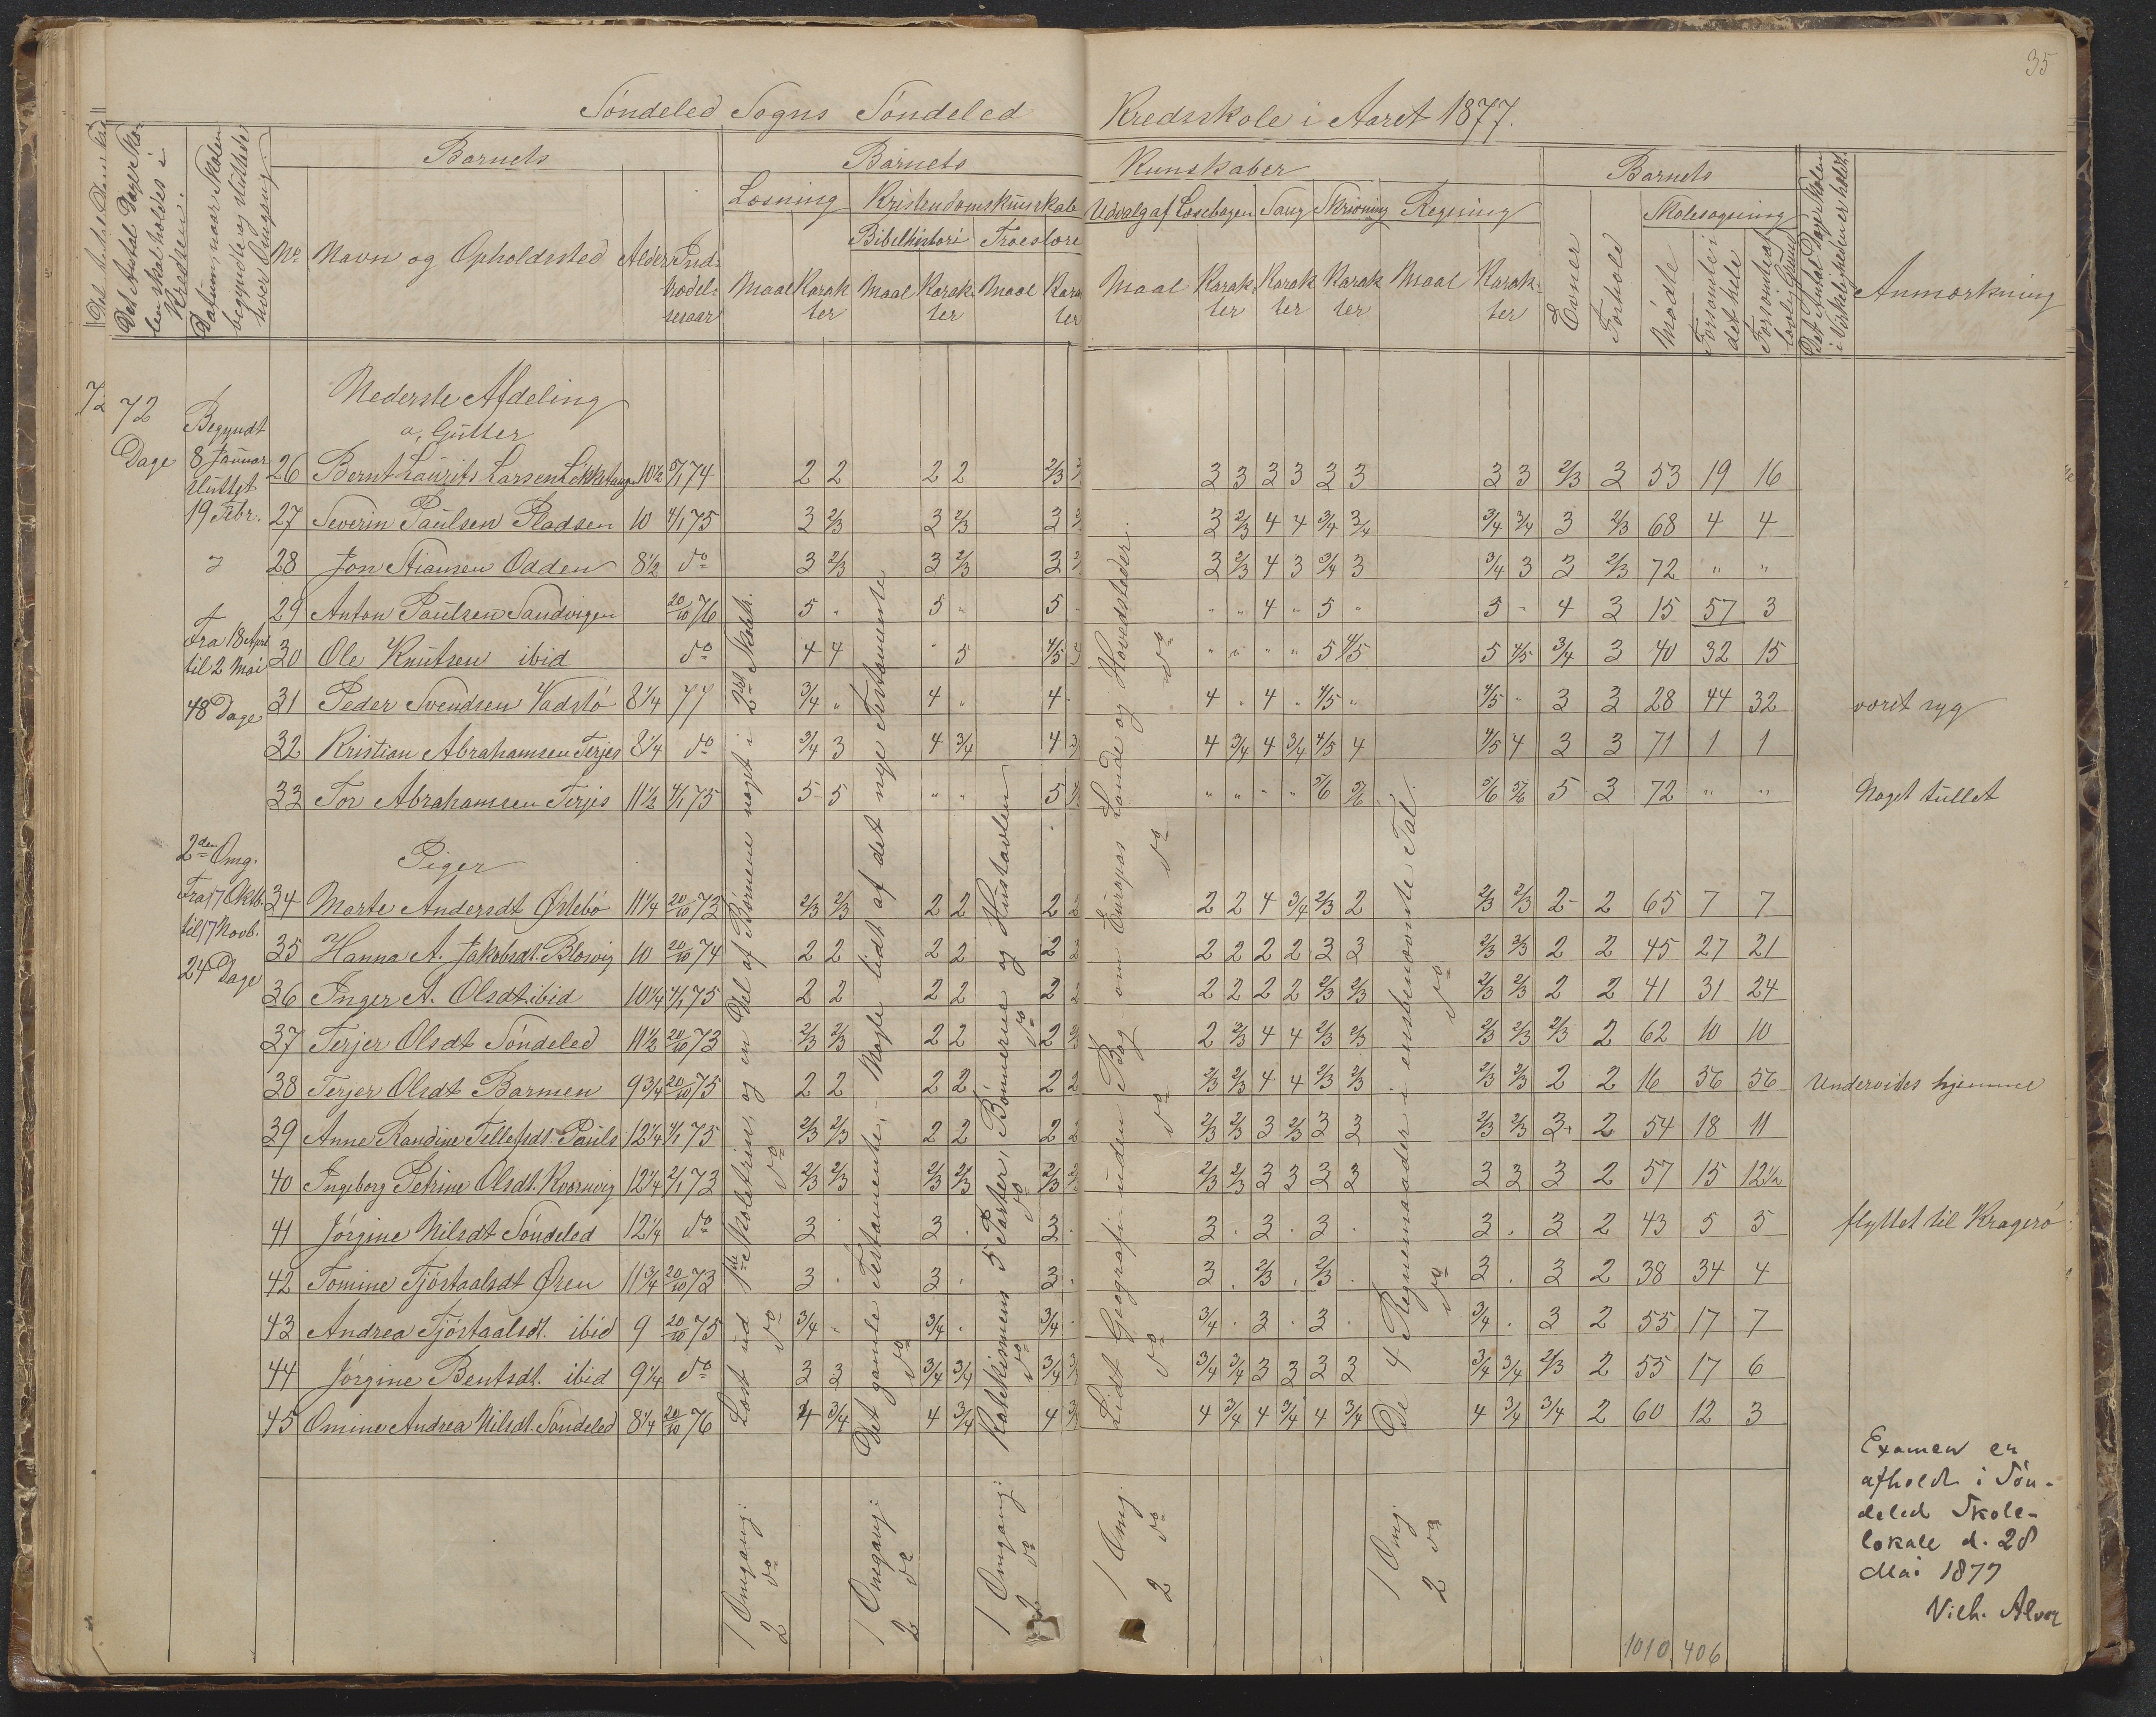 35
Søndeled Sogns Søndeled Kredsskole i Aaret 1877.
Det Antal Dage Skolen skal holdes i Kredsen.
Datum, naar Skolen begyndte og sluttede hver Omgang
Barnets
No
Navn og Opholdssted
Alder
Indtrædelsesaar
Barnets Kunskaber
Læsning
Maal Karakter
Kristendomskunskab
Bibelhistori
Maal Karakter
Troeslære
Maal Karakter
Udvalg af Læsebogen
Maal Karakter
Sang
Karakter
Skrivning
Karakter
Regning
Maal Karakter
Barnets
Evner
Forhold
Skolesøgning
Mødte
Forsømte i det hele
Forsømte af lovl. Grund
Det Antal Dage Skolen i Virkeligheden er holdt
Anmærkning
72
72 Dage
Begyndt
8 Januar
sluttet
19 Febr.
Fra 18 April
til 2 Mai
48 Dage
2den Omg.
Fra 17 Oktb.
til 17 Novb.
24 Dage
Nederste Afdeling
a, Gutter
26 Bernt Laurits Larsen Løkketangen 10½ 5/1 74 2 2 2 2 2/3 3 3 3 3 3 3 3 3 2/3 3 53 19 16
27 Severin Paulsen Pladsen 10 4/1 75 3 2/3 3 2/3 3 3 2/3 4 4 3/4 3/4 3/4 3/4 3 2/3 68 4 4
28 Jon Stiansen Odden 8½ do 3 2/3 3 2/3 3 3 2/3 4 3 3/4 3 3/4 3 3 2/3 72 " "
29 Anton Paulsen Sandvigen 20/10 76 5 " 5 " 5 " " 4 " 5 " 5 " 4 3 15 57 3
30 Ole Knutsen ibid do 4 4 " 5 4/5 " " " " 5 4/5 5 4/5 3/4 3 40 32 15
31 Peder Svendsen Vadstø 8¼ 77 3/4 " 4 " 4 4 " 4 " 4/5 " 4/5 " 3 3 28 44 32 været syg
32 Kristian Abrahamsen Terjes 8¼ do 3/4 3 4 3/4 4 4 3/4 4 3/4 4/5 4 4/5 4 3 3 71 1 1
33 Tor Abrahamsen Terjes 11½ 4/1 75 5 5 " " 5 " " " " 5/6 5/6 5/6 5/6 5 3 72 " " Noget tullet
Piger
34 Marte Andersdt Østebø 11¼ 20/10 73 2/3 2/3 2 2 2 2 2 2 4 3/4 2/3 2 2/3 2/3 2 2 65 7 7
35 Hanna A. Jakobsdt. Blesvig 10 20/10 74 2 2 2 2 2 2 2 2 2 2 3 3 2/3 2/3 2 2 45 27 21
36 Inger A. Olsdt. ibid 10¼ 4/1 75 2 2 2 2 2 2 2 2 2 2 2/3 2/3 2/3 2/3 2 2 41 31 24
37 Terjer Olsdt Søndeled 11½ 20/10 73 2/3 2/3 2 2 2 2/3 2 2/3 4 4 2/3 2/3 2/3 2/3 2/3 2 62 10 10
38 Terjer Olsdt Barmen 9¾ 20/10 75 2 2 2 2 2 2 2/3 2/3 4 4 2/3 2/3 2/3 2/3 2 2 16 56 56 Undervises hjemme
39 Anne Randine Tellefsdt. Pauls 12¼ 4/1 75 2/3 2/3 2 2 2 2 2/3 2/3 3 2/3 3 3 2/3 2/3 3 2 54 18 11
40 Ingeborg Petrine Olsdt. Kvernvig 12¼ 2/1 73 2/3 2/3 2/3 2/3 2/3 2/3 2/3 2/3 3 3 3 3 3 3 3 2 57 15 12½
41 Jørgine Nilsdt Søndeled 12¼ do 3 . 3 . 3 . 3 . 3 . 3 . 3 . 3 2 43 5 5 flyttet til Kragerø
42 Tomine Fjøstaalsdt Øren 11¾ 20/10 73 3 . 3 . 3 . 3 . 2/3 . 2/3 . 3 . 3 2 38 34 4
43 Andrea Fjøstaalsdt. ibid 9 20/10 75 3/4 . 3/4 . 3/4 . 3/4 . 3 . 3 . 3/4 . 3 2 55 17 7
44 Jørgine Bentsdt. ibid 9¼ do 3 3 3/4 3/4 3/4 3/4 3/4 3 3 3 3 3/4 3/4 2/3 2 55 17 6
45 Omine Andrea Nilsdt. Søndeled 8¼ 20/10 76 4 3/4 4 3/4 4 4 3/4 4 3/4 4 3/4 4 3/4 3/4 2 60 12 3
1 Omgang: Læst ud 1ste Skoletrin, og en Del af Børnene noget i 2det Skoletr.
2 do do do
1 Omgang: Det gamle Testamente, - Nogle lidt af det nye Testamente
2 do do
1 Omgang: Katekismens 5 Parter, Bønnerne og Hustavlen
2 do do do do
1 Omg. Lidt Geografi uden Bog om Europas Lande og Hovedsteder.
2 do do do do do
1 Omg. De 4 Regnemaader i ensbenævnte Tal.
2 do do do
Examen er
afholdt i Søn-
deled Skole-
lokale d. 28
Mai 1877
Vilh. Alver
1010 406